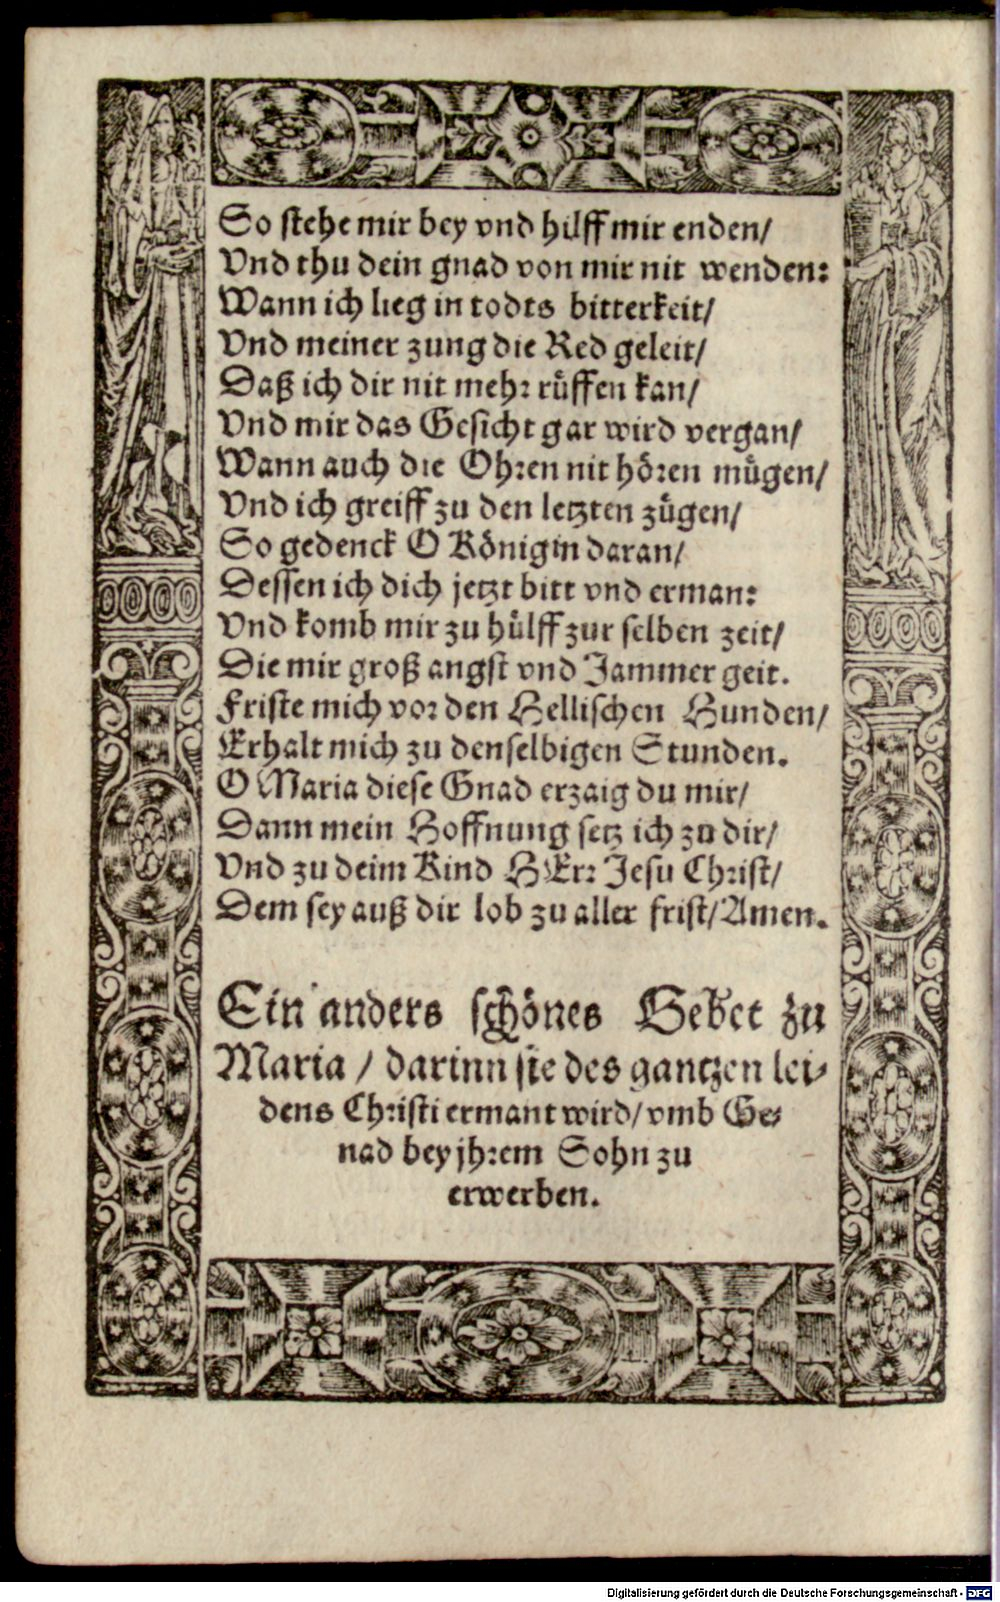 So stehe mir bey vnd hilff mir enden/
Vnd thu dein gnad von mir nit wenden:
Wann ich lieg in todts bitterkeit/
Vnd meiner zung die Red geleit/
Daß ich dir nit mehr rüffen kan/
Vnd mir das Gesicht gar wird vergan/
Wann auch die Ohren nit hören mügen/
Vnd ich greiff zu den letzten zügen/
So gedenck O Königin daran/
Dessen ich dich jetzt bitt vnd erman:
Vnd komb mir zu hülff zur selben zeit/
Die mir groß angst vnd Jammer geit.
Friste mich vor den Hellischen Hunden/
Erhalt mich zu denselbigen Stunden.
O Maria diese Gnad erzaig du mir/
Dann mein Hoffnung setz ich zu dir/
Vnd zu deim Kind HErr Jesu Christ/
Dem sey auß dir lob zu aller frist/Amen.
Ein anders schönes Gebet zu
Maria / darinn sie des gantzen lei-
dens Christi ermant wird/ vmb Ge-
nad bey jhrem Sohn zu
erwerben.
Digitalisierung gefördert durch die Deutsche Forschungsgemeinschaft - DFG